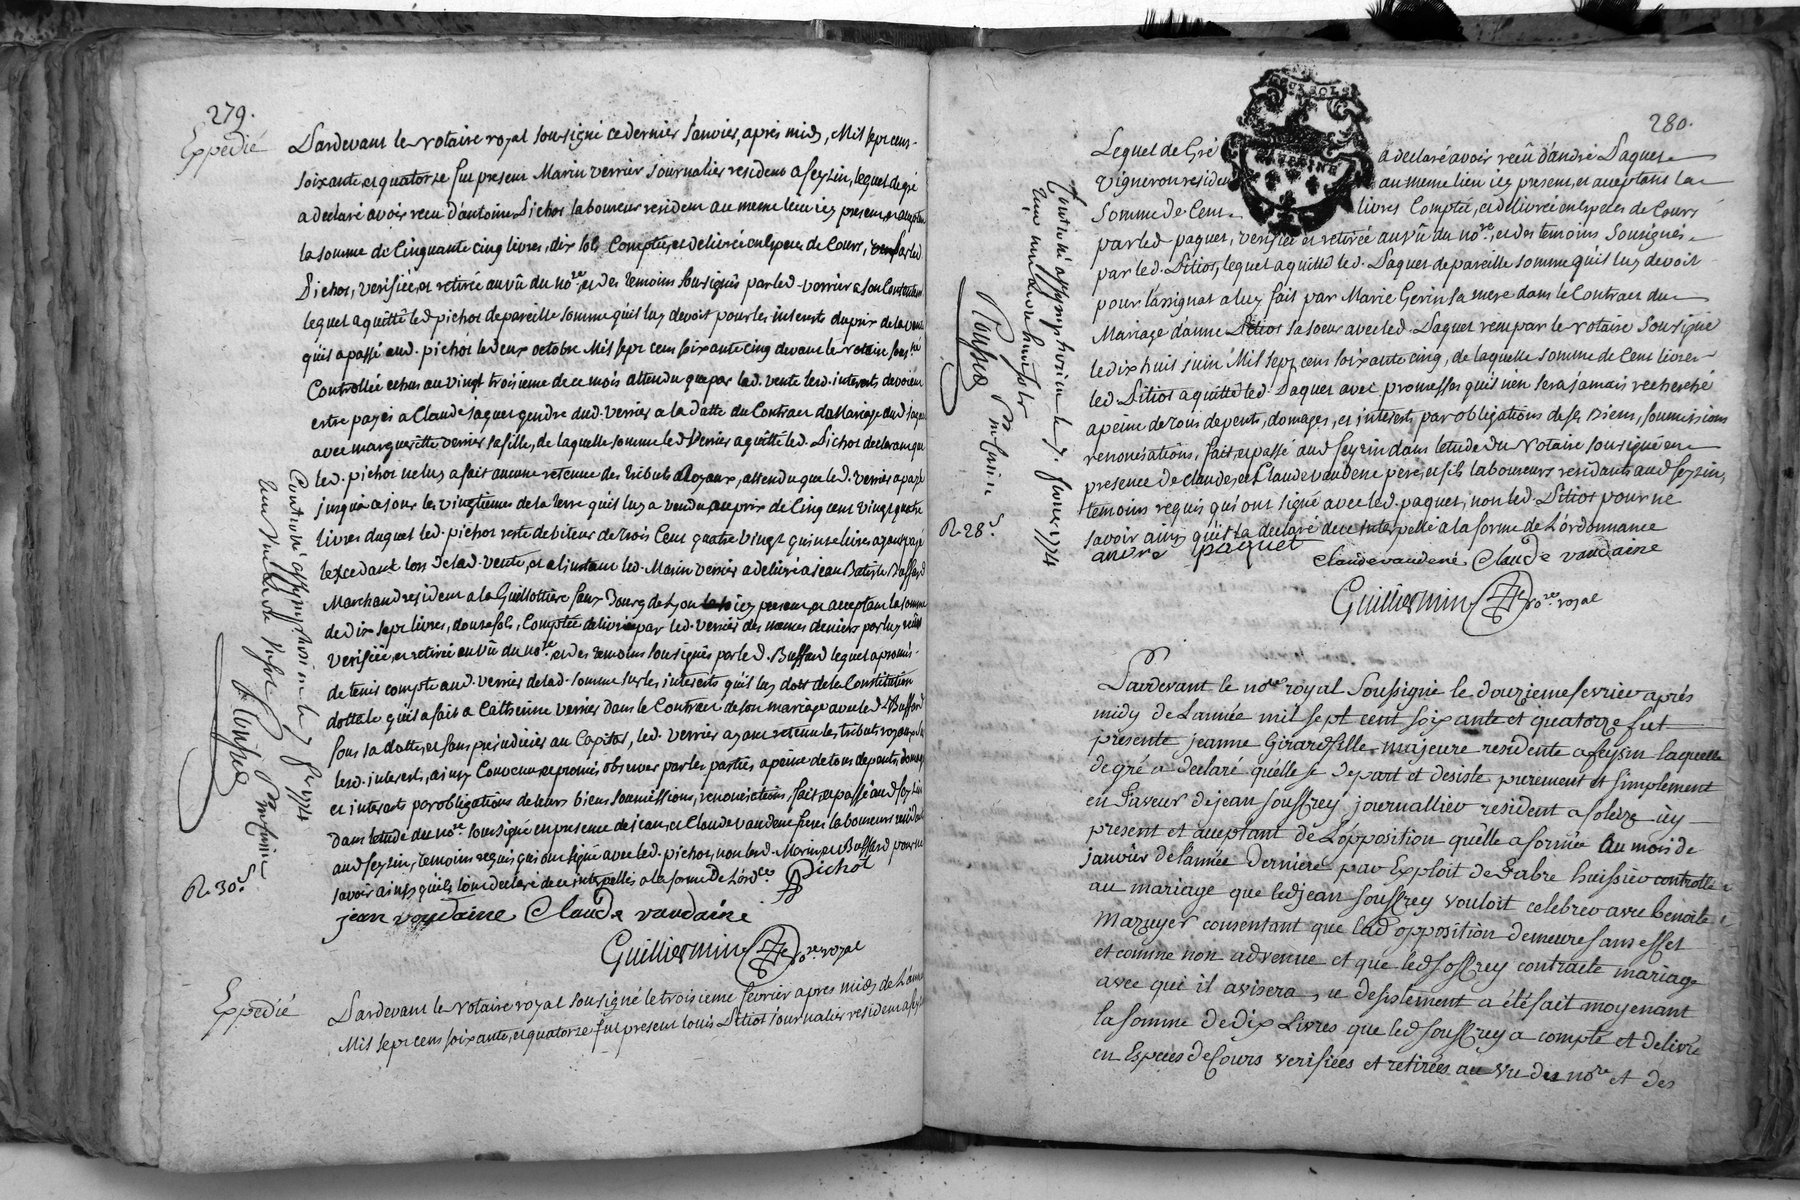 279.
Expedié
Pardevant le Notaire royal soussigné ce dernier Janvier, apres midy, Mil sept cens
soixante et quatorze fut present Marin verrier Journalier resident a feyzin, lequel de gré
a declaré avoir receu d'antoine Pichot laboureur resident au meme lieu icy present, et acceptant
la somme de Cinquante cinq livres, dix sols Comptée, et delivrée en Especes de Cours, par led.
Pichot, verifiée, et retirée au vû du nore. et des temoins soussignés par led. verrier a son Contentement
lequel a quitté led. pichot de pareille somme qu'il luy devoit pour les interests du prix de la vente
qu'il a passé aud. pichot le deux octobre Mil sept cens soixante cinq devant le Notaire soussné.
Controllée echus au vingt troisieme de ce mois attendu que par lad. vente lesd. interests devoient
estre payés a Claude Jaquet gendre dud. verrier a la datte du Contract de Mariage dud. Jaquet
avec margueritte verrier sa fille, de laquelle somme led. Verrier a quitté led. Pichot declarant que
led. pichot ne luy a fait aucune retenue des tributs Royaux, attendu que led. verrier a payé
jusqu'a ce jour les vingtiemes de la terre qu'il luy a vendu au prix de Cinq cent vingt quatre
livres duquel led. pichot reste debiteur de trois Cent quatre vingt quinze livres ayant payé
l'excedant lors de lad. vente, et a l'instant led. Marin verrier a delivré a jean Batiste Buffard
Marchand resident a la Guillottiere faux Bourg de Lyon icy present et acceptant la somme
de Dix sept livres, douze sols, Comptée delivrée par led. verrier des memes deniers par luy receus
verifiée, et retirée au vû du nore. et des temoins soussignés par led. Buffard lequel a promis
de tenir compte aud. verrier de lad. somme sur les interests qu'il luy doit de la Constitution
dottale qu'il a fait a Catherine verrier dans le Contract de son mariage avec led. Buffard
sous sa datte, et sans prejudicier au Capital, led. verrier ayant retenu les tributs royaux de
lesd. interests, ainsy Convenu et promis observer par les parties a peine de tous depents, domages
et interests par obligations de leurs biens soumissions, renonciations, fait et passé aud. feyzin
dans l'etude du nore. soussigné en presence de jean, et Claude vaudene freres laboureurs residents
aud. feyzin, temoins requis qui ont signé avec led. pichot, non lesd. Marin, et Buffard pour ne
savoir ainsy qu'ils l'ont declaré de ce interpellés a la forme de L'ordce. Pichot
jean voudaine Claude vaudaine
Guilliermin nore. royal
Controllé a st symphorien le 7 fr 1774
R. 30s.
Expedié
Pardevant le Notaire royal soussigné le troisieme fevrier apres midy de L'année
Mil sept cens soixante, et quatorze fut present louis Pitiot Journalier resident a feyzin
280.
Lequel de Gré a declaré avoir receu d'andré Paquet
Vigneron resident au meme lieu icy present, et acceptant la
somme de Cent livres Comptée, et delivrée en Especes de Cours
par led. paquet, verifiée et retirée au vû du nore. et des temoins soussignés
par led. Pitiot, lequel a quitté led. Paquet de pareille somme qu'il luy devoit
pour l'assignat a luy fait par Marie Gerin sa mere dans le Contract du
Mariage d'anne Pitiot sa soeur avec led. Paquet receu par le Notaire soussigné
le dix huit juin Mil sept cens soixante cinq, de laquelle somme de Cent livres
led. Pitiot a quitté led. Paquet avec promesse qu'il n'en sera jamais recherché
a peine de tous depents, domages, et interests par obligations de ses Biens, soumissions
renonciations, fait, et passé aud. feyzin dans l'etude du Notaire soussigné en
presence de Claude, et Claude vaudene pere, et fils laboureurs residants aud. feyzin,
temoins requis qui ont signé avec led. paquet, non led. Pitiot pour ne
savoir ainsy qu'il l'a declaré de ce interpellé a la forme de L'ordonnance
andré paquet
Claude vaudené Claude vaudaine
Guilliermin nore. royal
Controllé a st symphorien le 7. fevrier 1774
R. 28s.
Pardevant le nore royal Soussigné le douzieme fevrier aprés
midy de L'année mil sept cent soixante et quatorze fut
presente jeanne Girard fille majeure residente a feysin laquelle
de gré a declaré qu'elle se depart et desiste purement et simplement
en faveur de jean souffrey journallier resident a solaize icy
present et acceptant de L'opposition qu'elle a formée au mois de
janvier de l'année derniere par Exploit de Fabre huissier controllé
au mariage que led jean souffrey vouloit celebrer avec benoite
Mazuyer consentant que lad opposition demeure sans effet
et comme non advenue et que led soffrey contracte mariage
avec qui il avisera, ce desistement a été fait moyenant
la somme de dix Livres que led souffrey a compté et delivré
en Especes de Cours verifiées et retirées au vu du nore et des